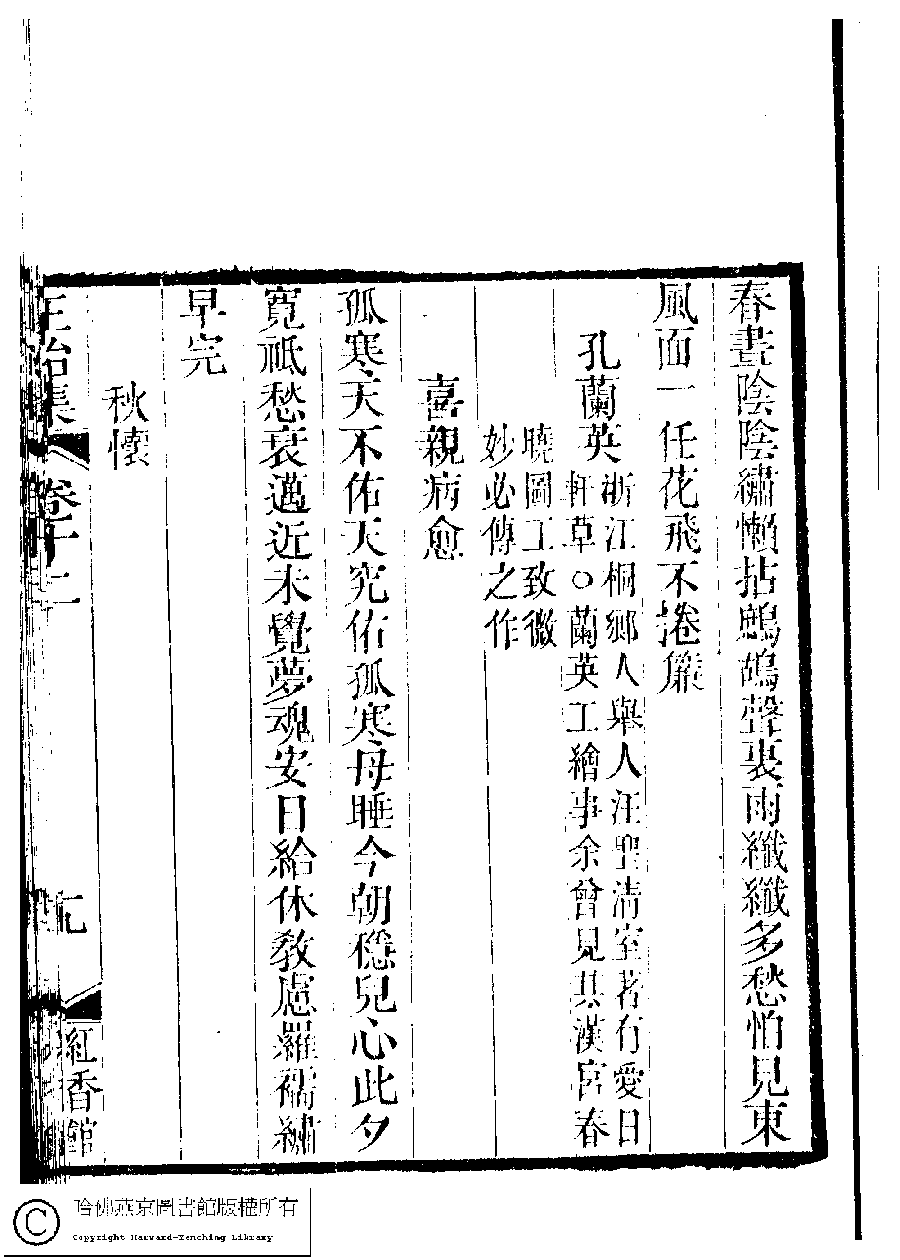 春晝陰陰繡懶拈鷓鴣聲裏雨纖纖多愁怕見東
風面一任花飛不捲簾
孔蘭英
浙江桐鄉人舉人汪聖清室著有愛日
軒草○蘭英工繪事余曾見其漢宮春
曉圖工致微
妙必傳之作
喜親病愈
孤寒天不佑天究佑孤寒母睡今朝穩兒心此夕
寬祇愁衰邁近未覺夢魂安日給休教慮羅襦繡
早完
秋懷
正始集
卷十二
九
紅香館
哈佛燕京圖書館版權所有
Copyright Harvard-Yenching Library